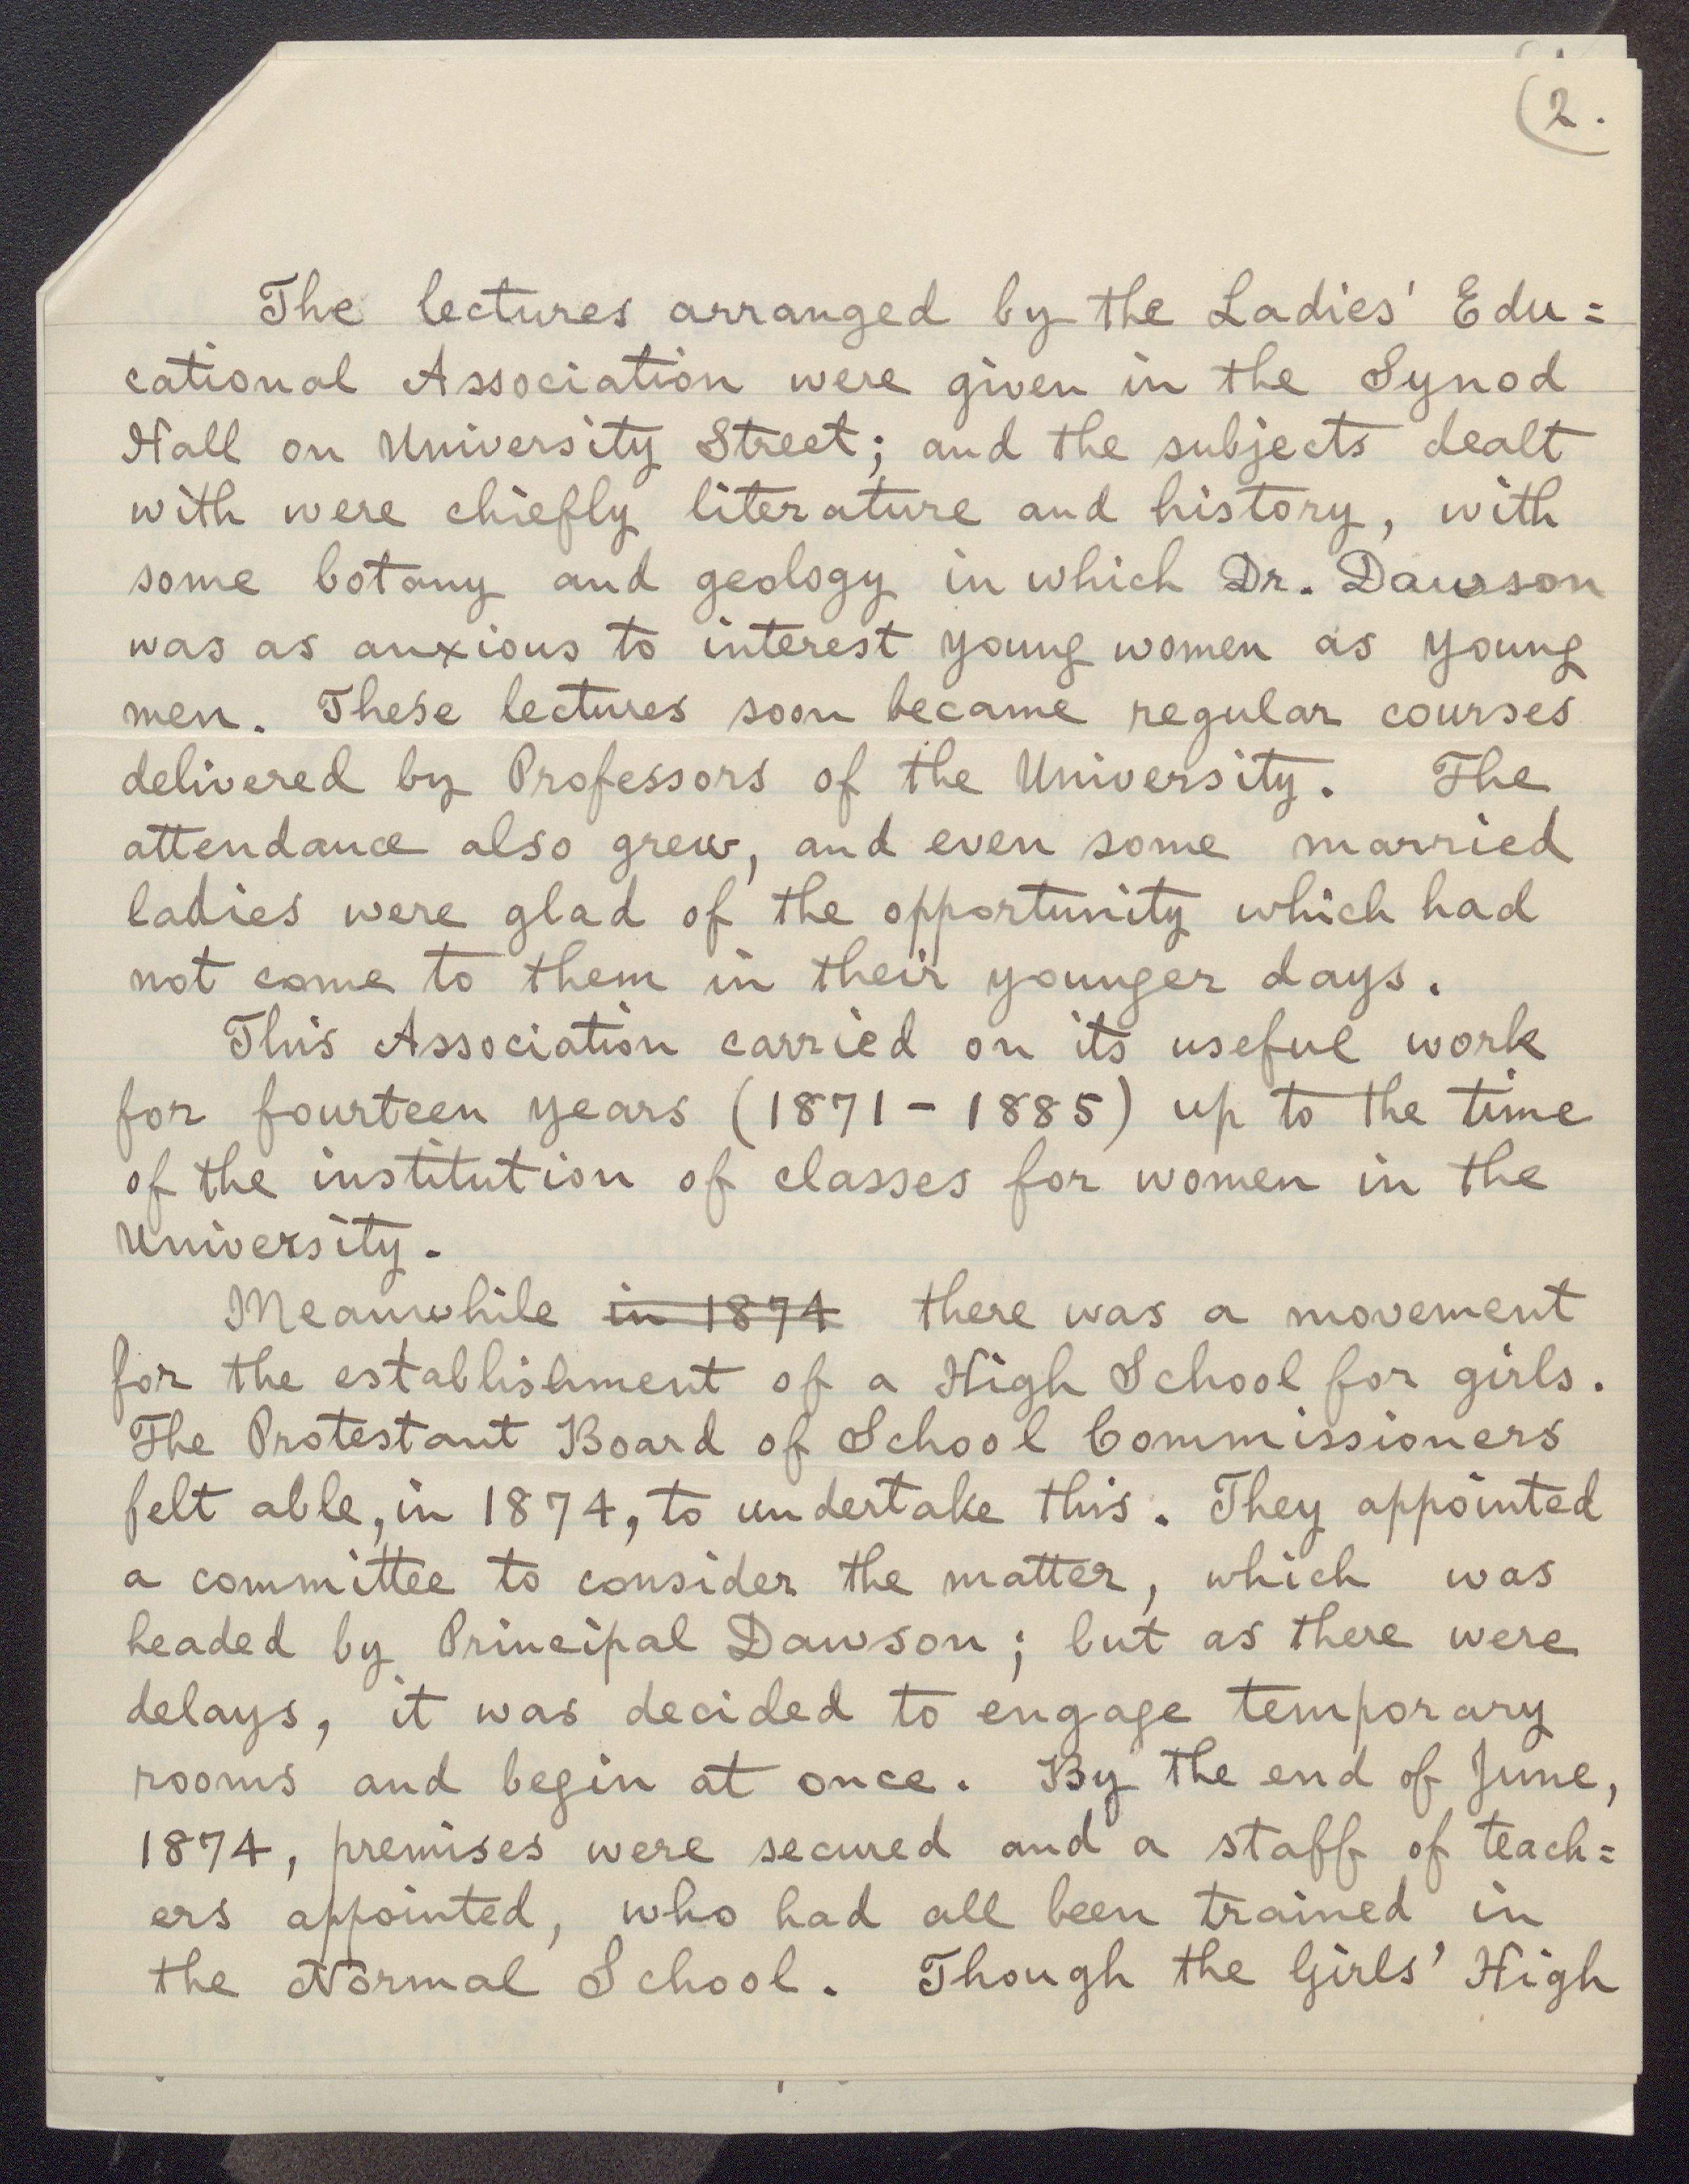 (2.
The lectures arranged by the Ladies' Edu=
cational Association were given in the Synod
Hall on University Street; and the subjects dealt
with were chiefly literature and history, with
some botany and geology in which Dr. Dawson
was as anxious to interest young women as young
men. These lectures soon became regular courses
delivered by Professors of the University. The
attendance also grew, and even some married
ladies were glad of the opportunity which had
not come to them in their younger days.
This Association carried on its useful work
for fourteen years (1871 - 1885) up to the time
of the institution of classes for women in the
University.
Meanwhile in 1874 there was a movement
for the establishment of a High School for girls.
The Protestant Board of School Commissioners
felt able, in 1874, to undertake this. They appointed
a committee to consider the matter, which was
headed by Principal Dawson; but as there were
delays, it was decided to engage temporary
rooms and begin at once. By the end of June,
1874, premises were secured and a staff of teach=
ers appointed, who had all been trained in
the Normal School. Though the Girls' High